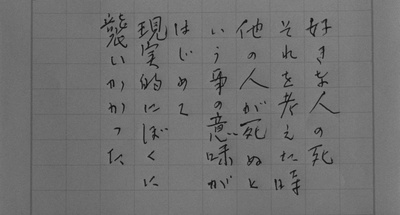 好きな人の死
それを考えた時
他の人が死ぬと
いう事の意味が
はじめて
現実的にぼくに
襲いかかった